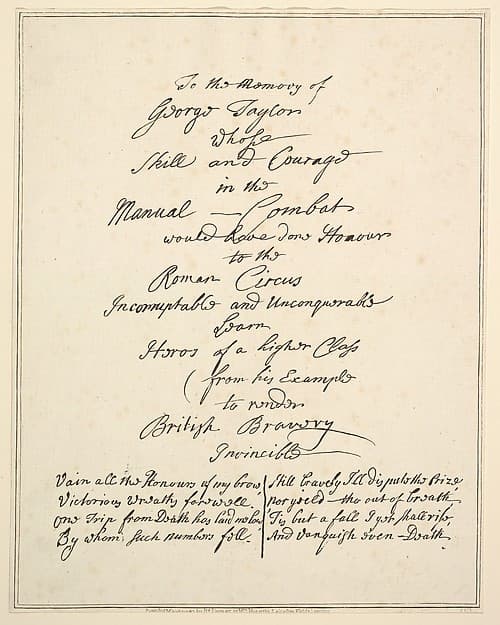 To the Memory of
George Taylor
whose
Skill and Courage
in the
Manual — Combat
would have done Honour
to the
Roman Circus
Incorruptable and Unconquerable
Learn
Heros of a higher Class
(from his Example
to render
British Bravery
Invincible
Vain all the Honours of my brow
Victorious wreaths farewell.
One Trip from Death has laid me low
By whom such numbers fell.
Still bravely I'll dispute the Prize
nor yield — tho out of breath
Tis but a fall I yet shall rise,
And Vanquish even — Death